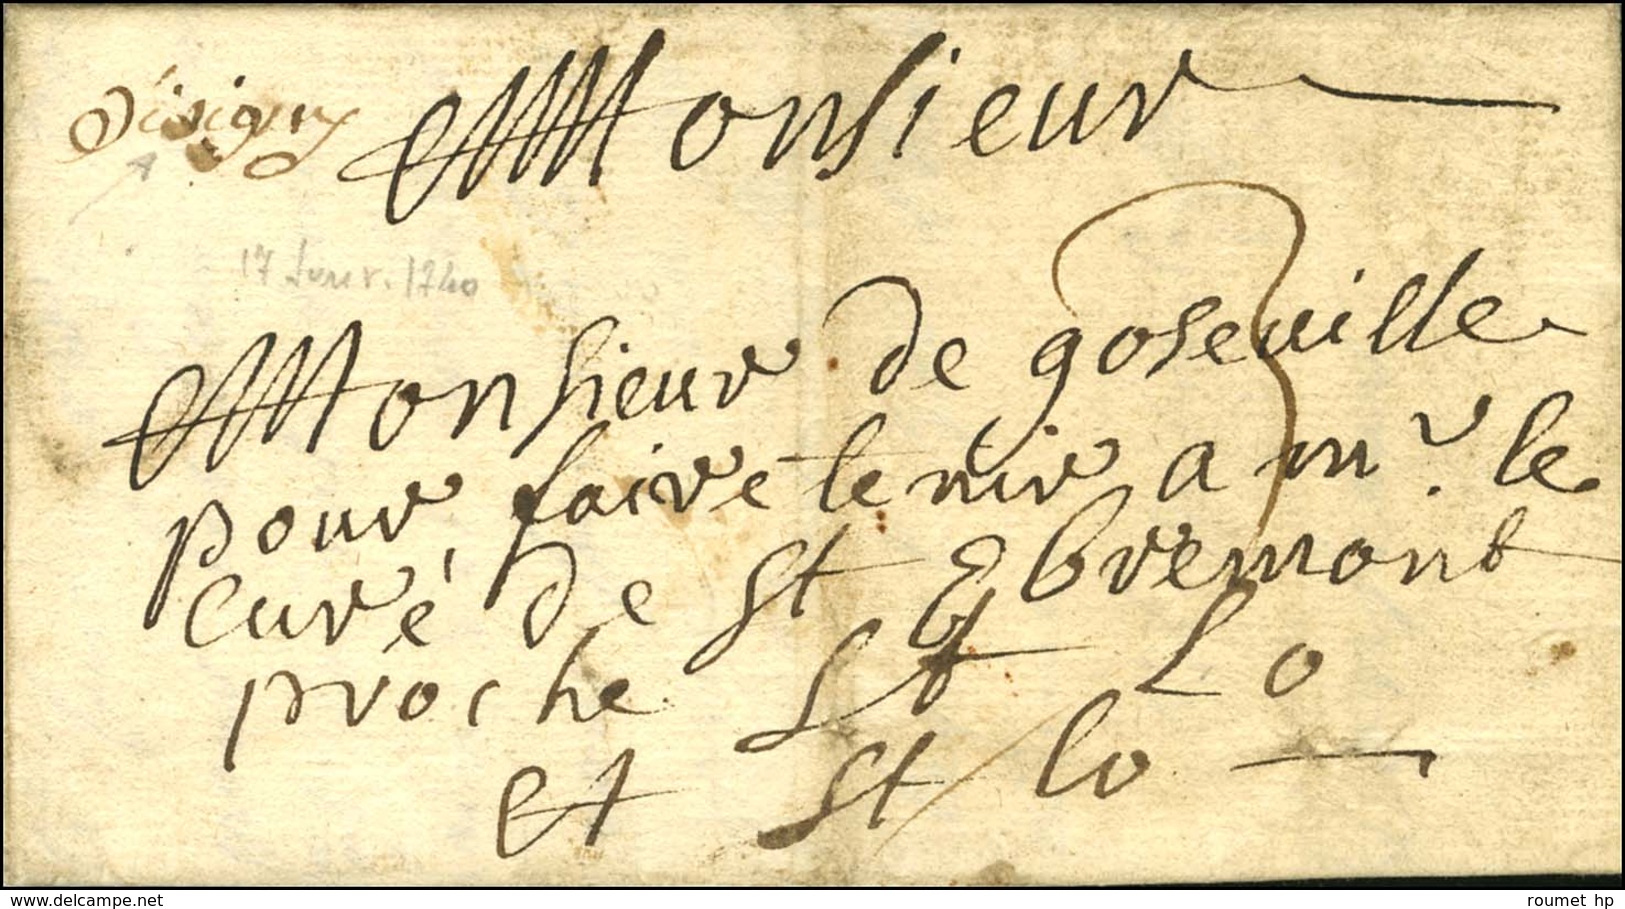 D'isigny
Monsieur
17 Janv. 1740
Monsieur de goseuille
pour faire tenir a mr. le
curé de st Ebremont
proche st Lo
et st lo
www.delcampe.net
roumet hp